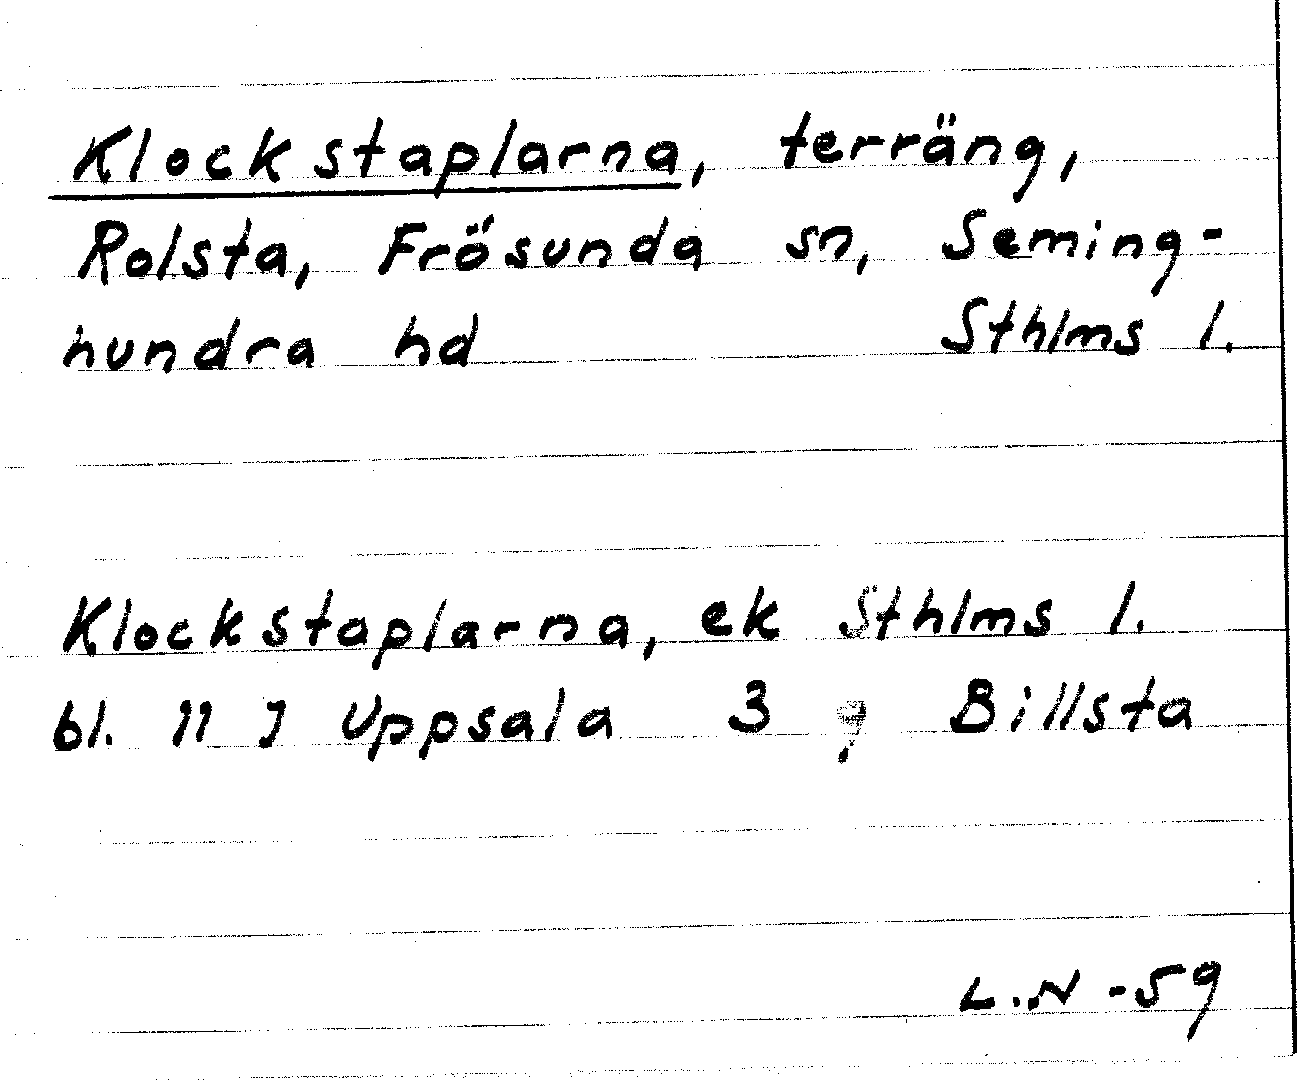 Klockstaplarna, terräng,
Rolsta, Frösunda sn, Seming-
hundra hd Sthlms l.
Klockstaplarna, ek Sthlms l.
bl. 11 J Uppsala 3 g Billsta
L.N -59